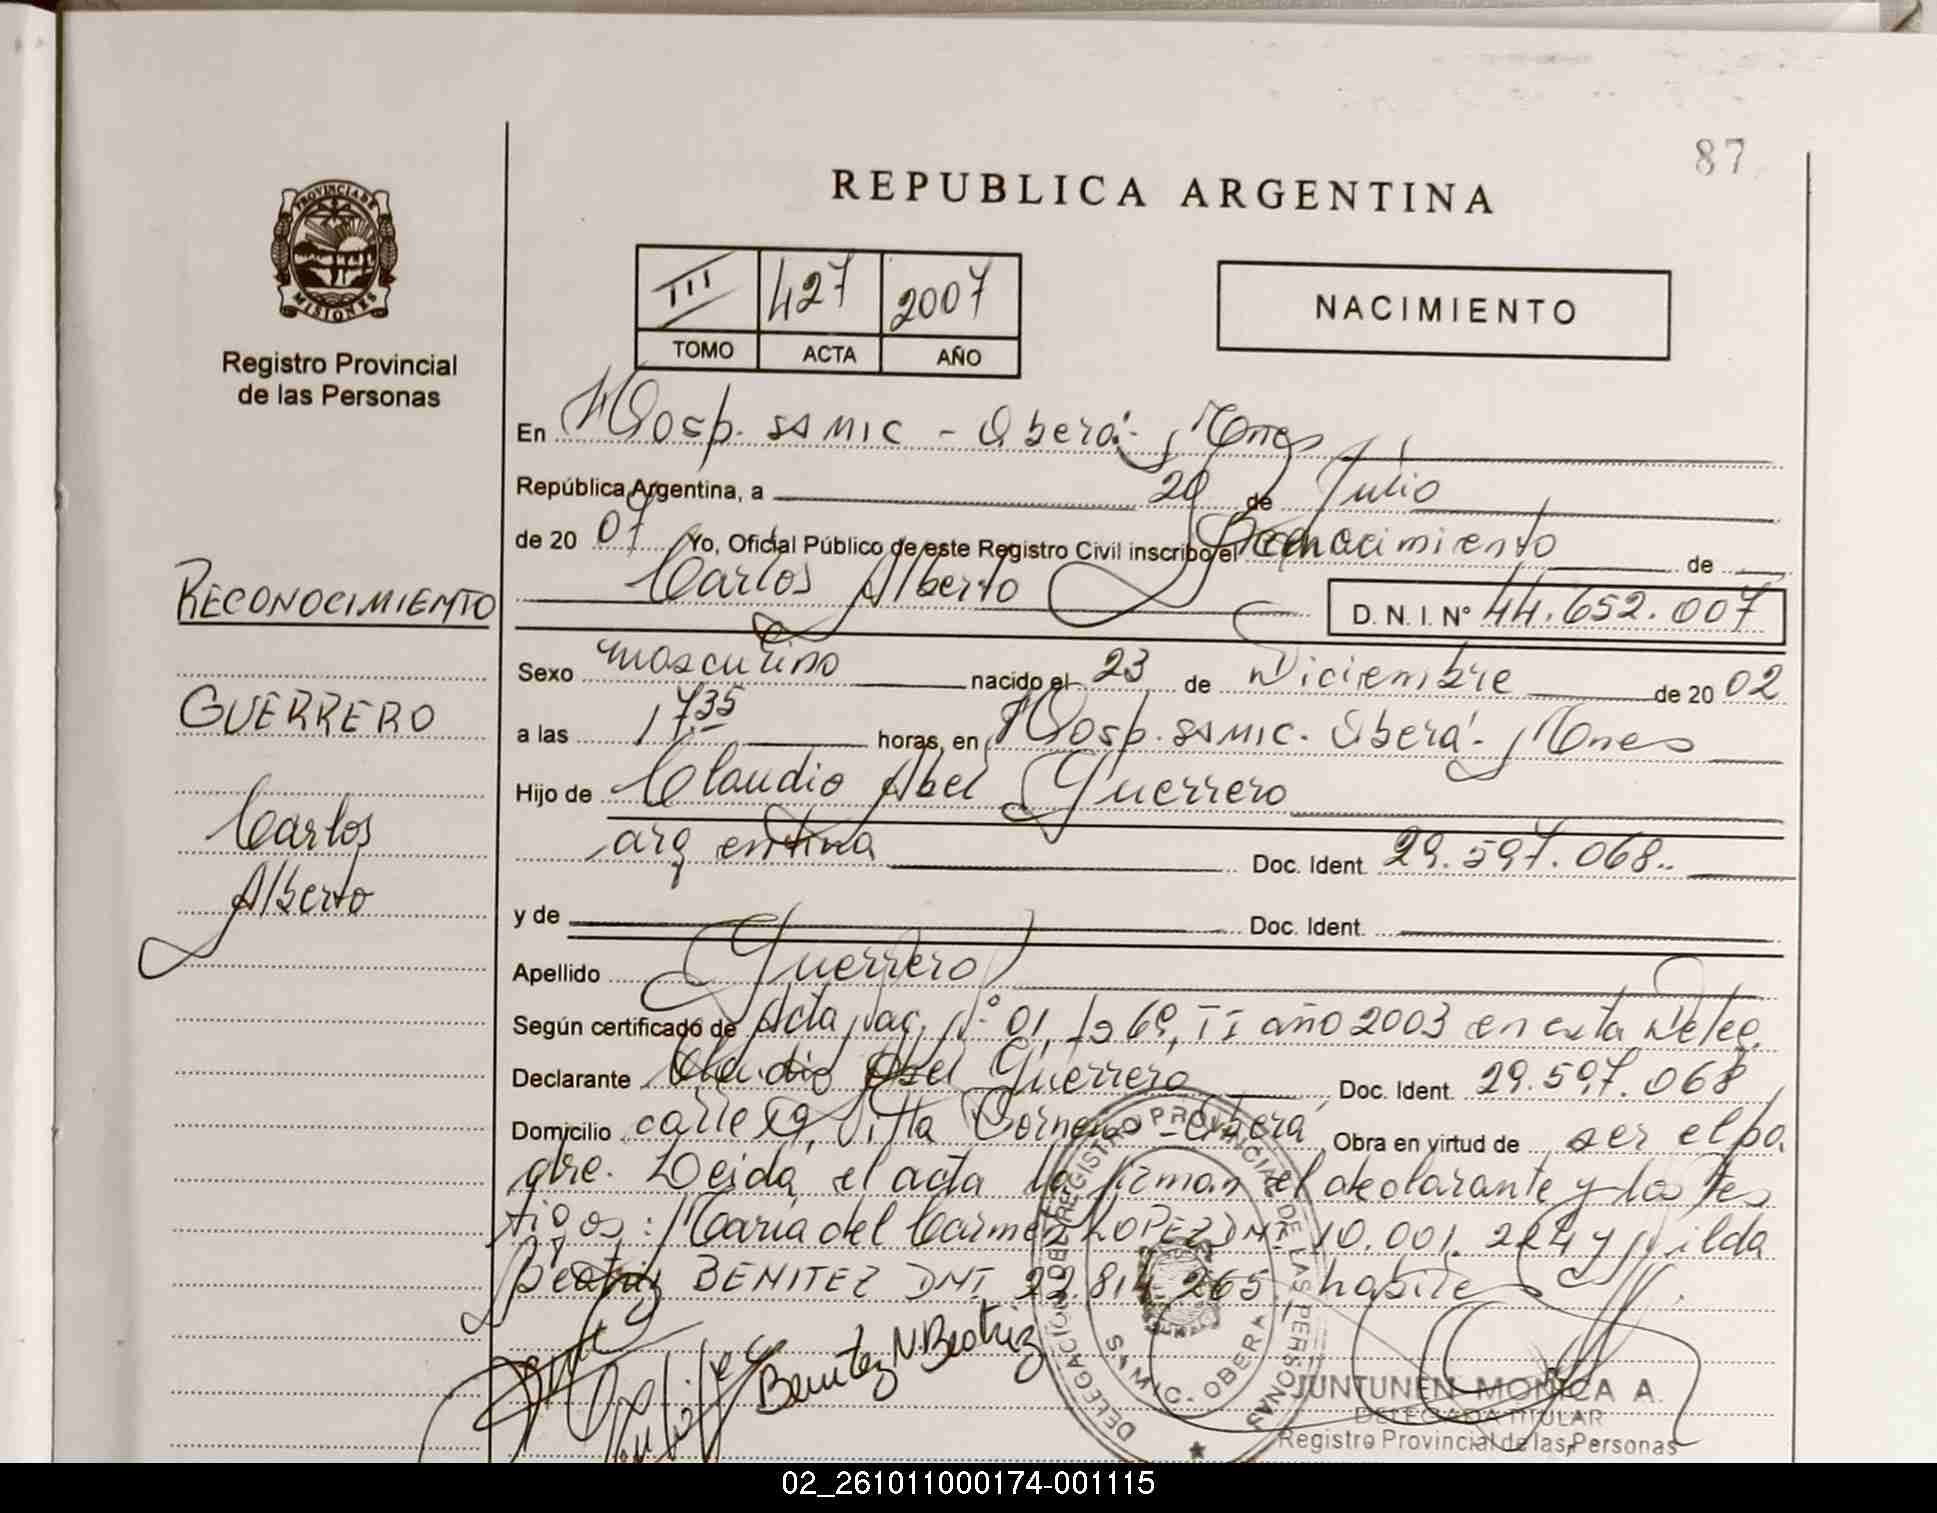 87
REPUBLICA ARGENTINA
PROVINCIA DE MISIONES
Registro Provincial
de las Personas
III 427 2007
TOMO ACTA AÑO
NACIMIENTO
En Hosp. SAMIC - Oberá - Mnes
República Argentina, a 20 de Julio
de 2007 Yo, Oficial Público de este Registro Civil inscribo el Reconocimiento de
Carlos Alberto D. N. I. N° 44.652.007
Sexo masculino nacido el 23 de Diciembre de 2002
a las 17,35 horas, en Hosp. SAMIC. Oberá - Mnes
Hijo de Claudio Abel Guerrero
argentina Doc. Ident. 29.597.068..
y de Doc. Ident.
Apellido Guerrero
Según certificado de Acta Nac. N° 01, Fº 69, TI año 2003 en esta Deleg.
Declarante Claudio Abel Guerrero Doc. Ident. 29.597.068
Domicilio calle Villa - Oberá Obra en virtud de ser el pa
dre. Leida el acta la firman el declarante y los tes
tigos: Maria del Carmen LOPEZ DNI. 10.001. y Nilda
Beatriz BENITEZ DNI. 22.814.265. habiles
RECONOCIMIENTO
GUERRERO
Carlos
Alberto
Benitez N. Beatriz
DELEGACION DEL REGISTRO PROVINCIAL DE LAS PERSONAS
SAMIC - OBERA
JUNTUNEN MONICA A.
DELEGADA TITULAR
Registro Provincial de las Personas
02_261011000174-001115